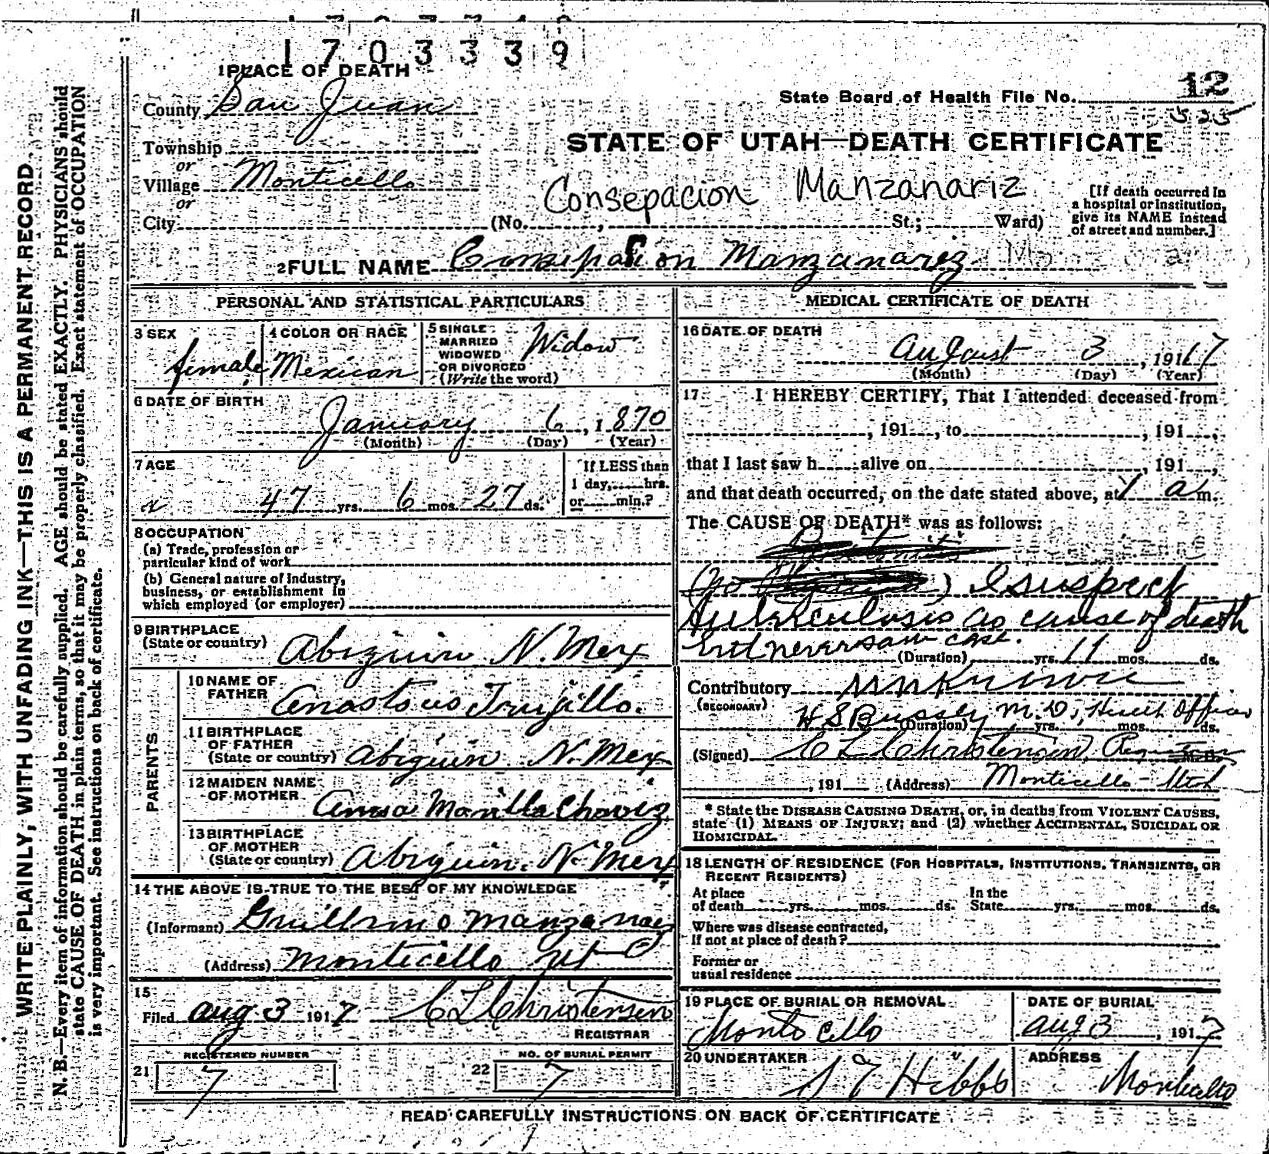 1703339
1 PLACE OF DEATH
County San Juan
State Board of Health File No. 12
525
STATE OF UTAH—DEATH CERTIFICATE
Township
or
Village Monticello
or
City (No. , St.; Ward)
Consepacion Manzanariz
[If death occurred in
a hospital or institution,
give its NAME instead
of street and number.]
2 FULL NAME Consepacion Manzanariz
WRITE PLAINLY, WITH UNFADING INK—THIS IS A PERMANENT RECORD
N. B.—Every item of information should be carefully supplied. AGE should be stated EXACTLY. PHYSICIANS should
state CAUSE OF DEATH in plain terms, so that it may be properly classified. Exact statement of OCCUPATION
is very important. See instructions on back of certificate.
PERSONAL AND STATISTICAL PARTICULARS
3 SEX
female
4 COLOR OR RACE
Mexican
5 SINGLE
MARRIED
WIDOWED
OR DIVORCED
(Write the word)
Widow
6 DATE OF BIRTH
January 6, 1870
(Month) (Day) (Year)
7 AGE
47 yrs. 6 mos. 27 ds.
If LESS than
1 day, hrs.
or min.?
8 OCCUPATION
(a) Trade, profession or
particular kind of work
(b) General nature of industry,
business, or establishment in
which employed (or employer)
9 BIRTHPLACE
(State or country) Abiquin N. Mex
PARENTS
10 NAME OF
FATHER Anastocio Trujillo.
11 BIRTHPLACE
OF FATHER
(State or country) Abiquin N. Mex
12 MAIDEN NAME
OF MOTHER Anna Manilla Chavez
13 BIRTHPLACE
OF MOTHER
(State or country) Abiquin. N. Mex
14 THE ABOVE IS TRUE TO THE BEST OF MY KNOWLEDGE
(Informant) Guillrmo Manzanaez
(Address) Monticello Ut
15
Filed Aug 3 1917 C L Christensen
REGISTRAR
REGISTERED NUMBER
21 7
NO. OF BURIAL PERMIT
22 7
MEDICAL CERTIFICATE OF DEATH
16 DATE OF DEATH
August 3, 1917
(Month) (Day) (Year)
17 I HEREBY CERTIFY, That I attended deceased from
, 191 , to , 191 ,
that I last saw h alive on , 191 ,
and that death occurred, on the date stated above, at 1 a m.
The CAUSE OF DEATH* was as follows:
(No ) I suspect
tuberculosis as cause of death
but never saw case.
(Duration) yrs. 11 mos. ds.
Contributory unknown
(SECONDARY)
H S Bussey M. D., Health Officer
(Duration) yrs. mos. ds.
(Signed) C L Christensen, Reg
, 191 (Address) Monticello - Utah
* State the DISEASE CAUSING DEATH, or, in deaths from VIOLENT CAUSES,
state (1) MEANS OF INJURY; and (2) whether ACCIDENTAL, SUICIDAL OR
HOMICIDAL.
18 LENGTH OF RESIDENCE (FOR HOSPITALS, INSTITUTIONS, TRANSIENTS, OR
RECENT RESIDENTS)
At place
of death yrs. mos. ds.
In the
State yrs. mos. ds.
Where was disease contracted,
if not at place of death?
Former or
usual residence
19 PLACE OF BURIAL OR REMOVAL
Montocello
DATE OF BURIAL
Aug 3, 1917
20 UNDERTAKER
S T Hibbs
ADDRESS
Monticello
READ CAREFULLY INSTRUCTIONS ON BACK OF CERTIFICATE